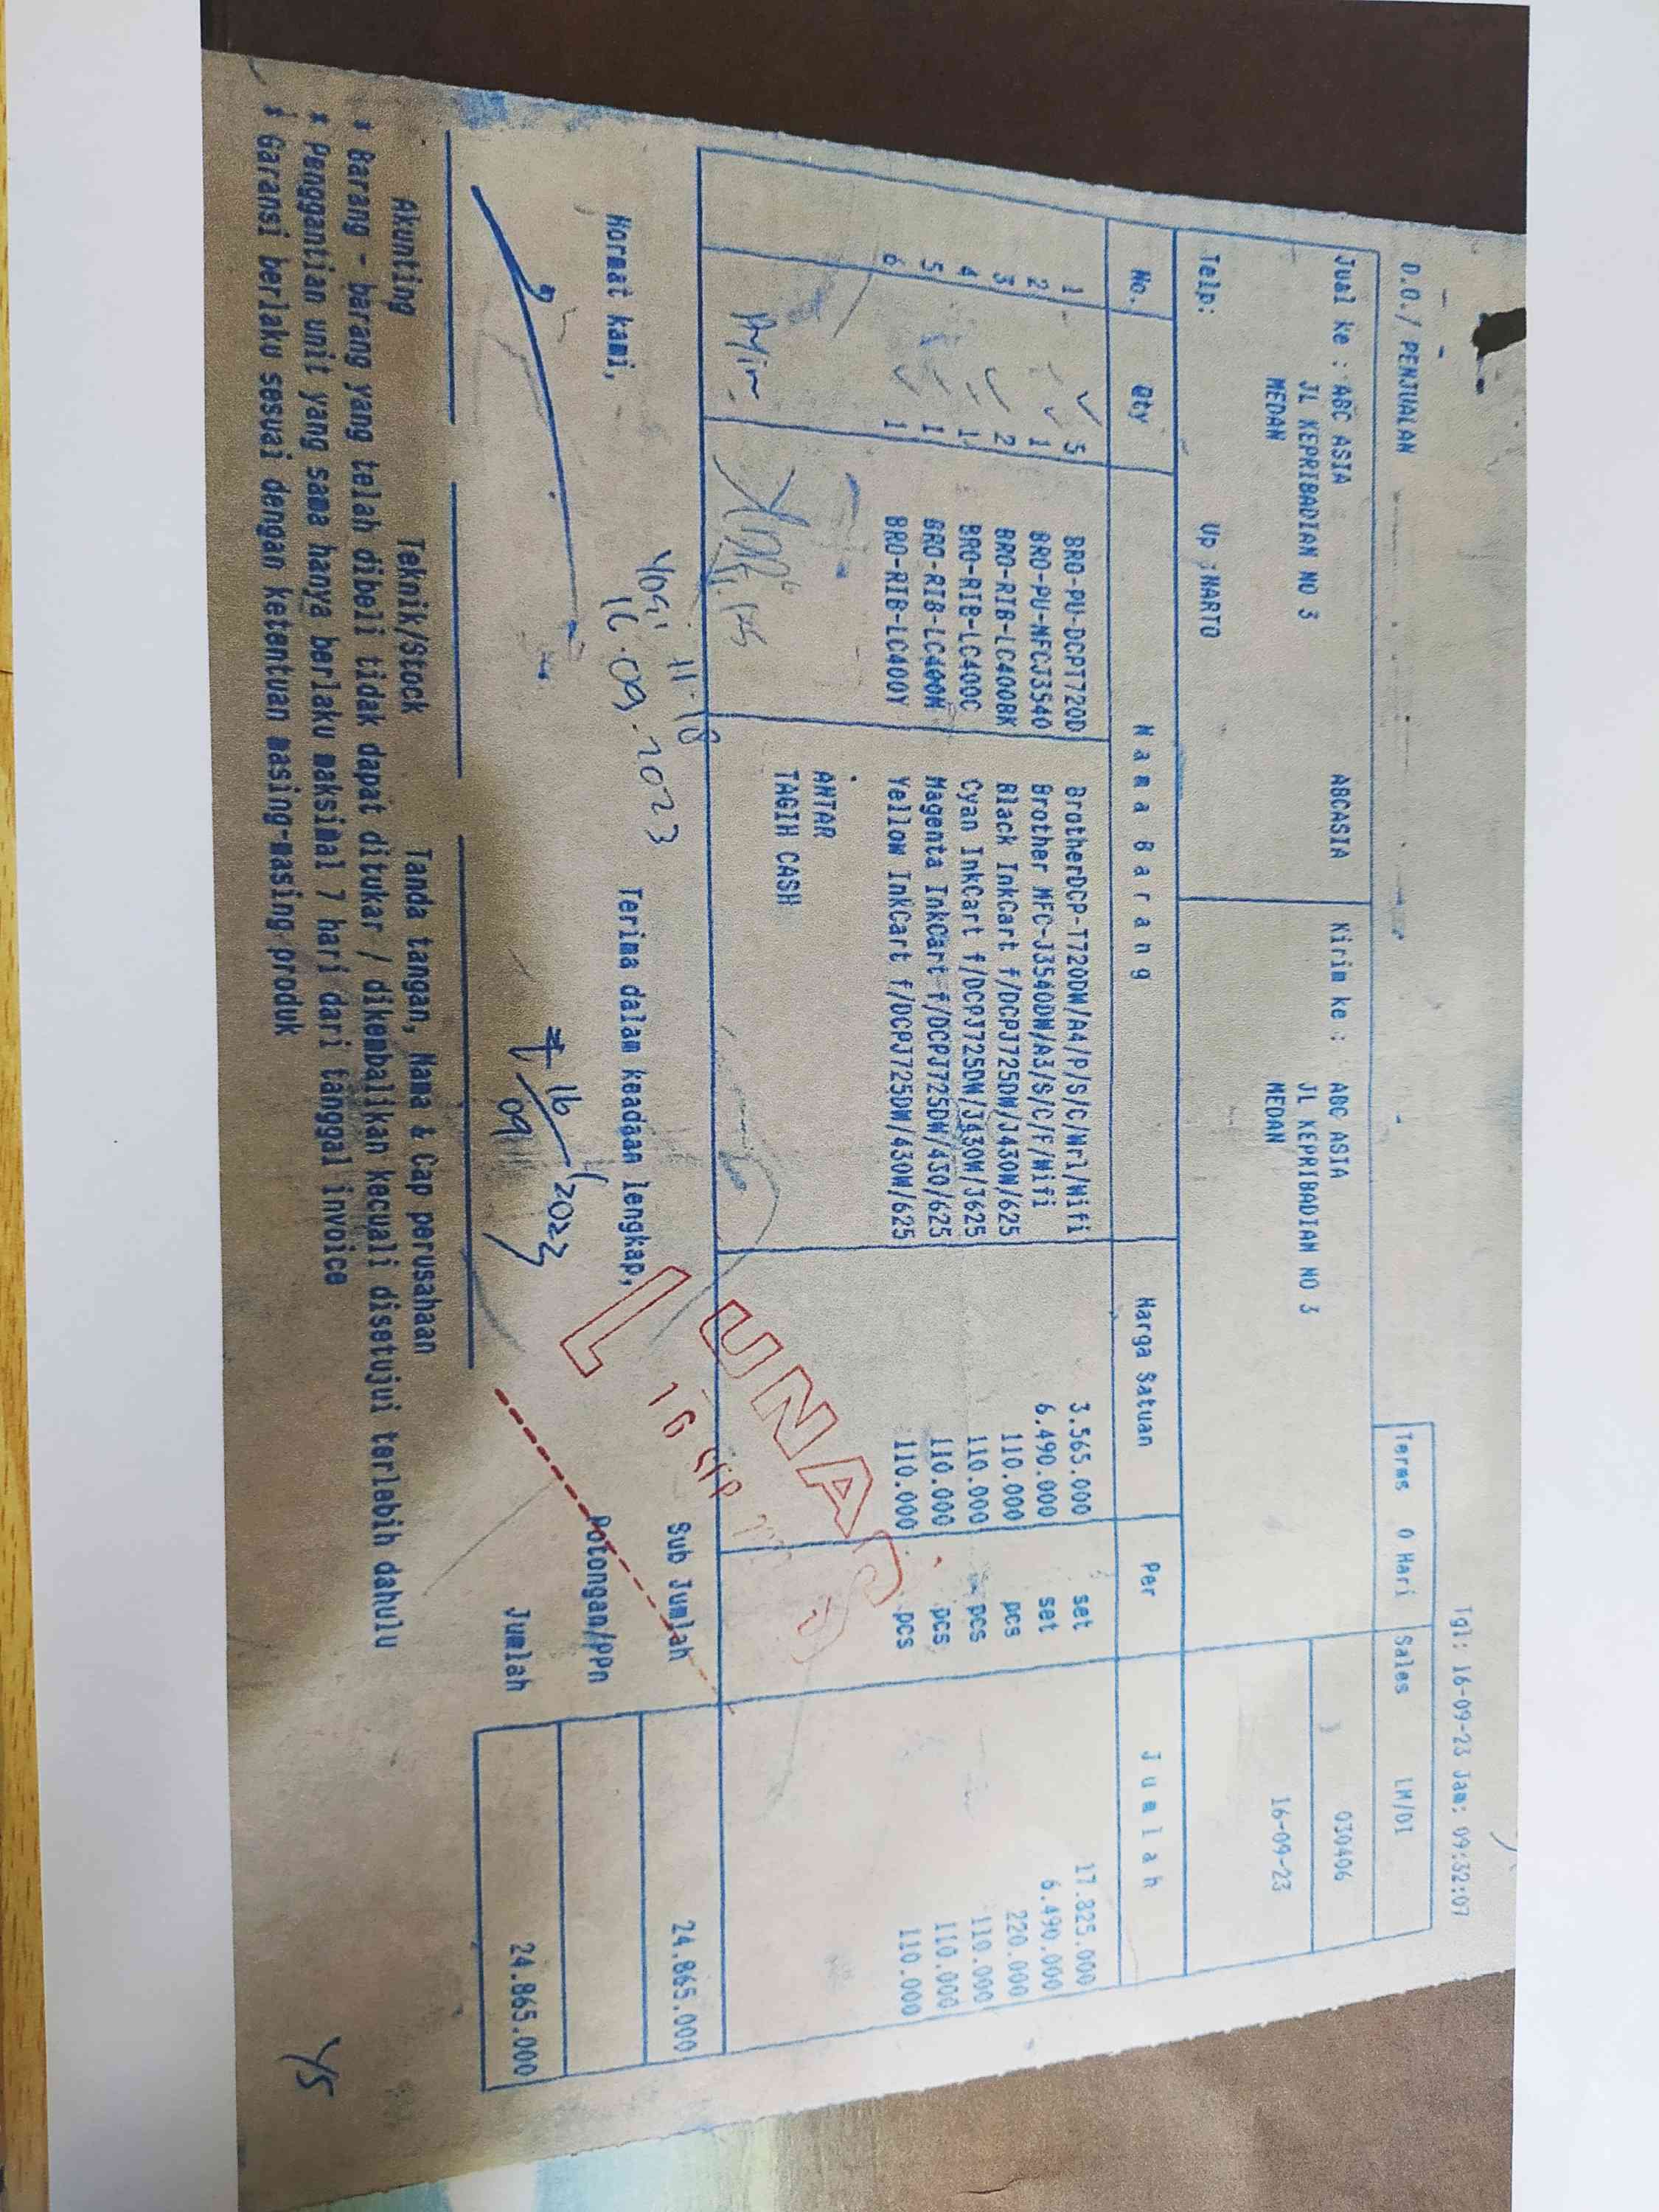 Tgl: 16-09-23 Jam: 09:32:07
D.O./ PENJUALAN
Terms 0 Hari Sales LM/DI
Jual ke : ABC ASIA ABCASIA Kirim ke : ABC ASIA 030406
JL KEPRIBADIAN NO 3 JL KEPRIBADIAN NO 3
MEDAN MEDAN 16-09-23
Telp: Up :HARTO
No. Qty Nama Barang Harga Satuan Per Jumlah
1 5 BRO-PU-DCPT720D BrotherDCP-T720DW/A4/P/S/C/Wrl/Wifi 3.565.000 set 17.825.000
2 1 BRO-PU-MFCJ3540 Brother MFC-J3540DW/A3/S/C/F/Wifi 6.490.000 set 6.490.000
3 2 BRO-RIB-LC400BK Black InkCart f/DCPJ725DW/J430W/625 110.000 pcs 220.000
4 1 BRO-RIB-LC400C Cyan InkCart f/DCPJ725DW/J430W/J625 110.000 pcs 110.000
5 1 BRO-RIB-LC400M Magenta InkCart f/DCPJ725DW/430/625 110.000 pcs 110.000
6 1 BRO-RIB-LC400Y Yellow InkCart f/DCPJ725DW/430W/625 110.000 pcs 110.000
ANTAR
TAGIH CASH
LUNAS
16 SEP
11-18
Yogi
16.09.2023
Sub Jumlah 24.865.000
Hormat kami, Terima dalam keadaan lengkap,
Potongan/PPn
16/09/2023
Jumlah 24.865.000
Akunting Teknik/Stock Tanda tangan, Nama & Cap perusahaan
* Barang - barang yang telah dibeli tidak dapat ditukar / dikembalikan kecuali disetujui terlebih dahulu
* Penggantian unit yang sama hanya berlaku maksimal 7 hari dari tanggal invoice
* Garansi berlaku sesuai dengan ketentuan masing-masing produk